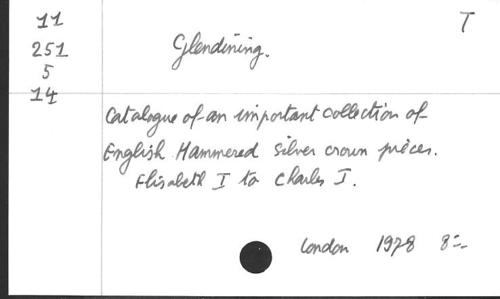 11 T
251 Glendining.
5
14
Catalogue of an important collection of
English Hammered silver crown pièces.
Elisabeth I to Charles I.
London 1978 8:-